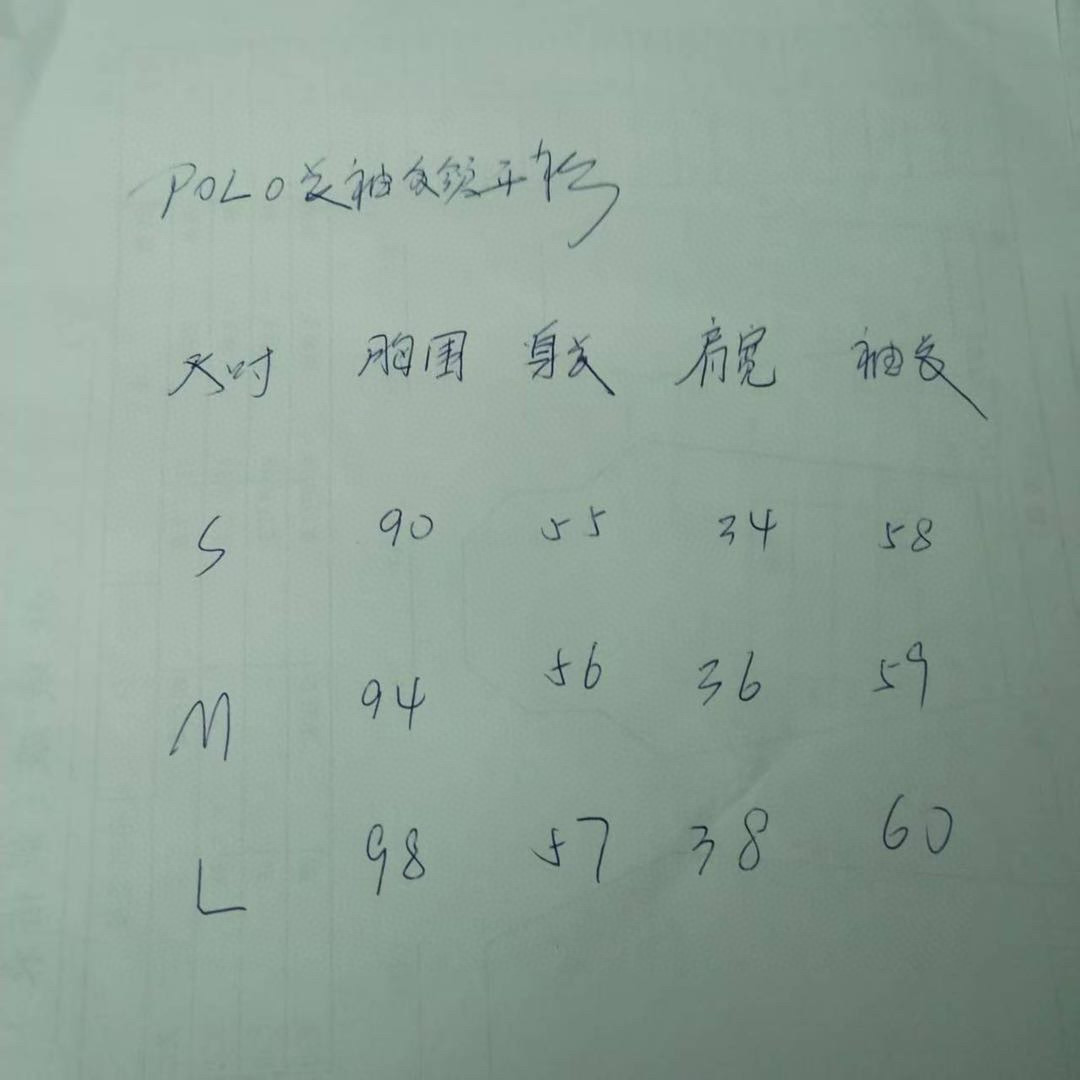 POLO长袖女领开衫
尺寸 胸围 身长 肩宽 袖长
S 90 55 34 58
M 94 56 36 59
L 98 57 38 60